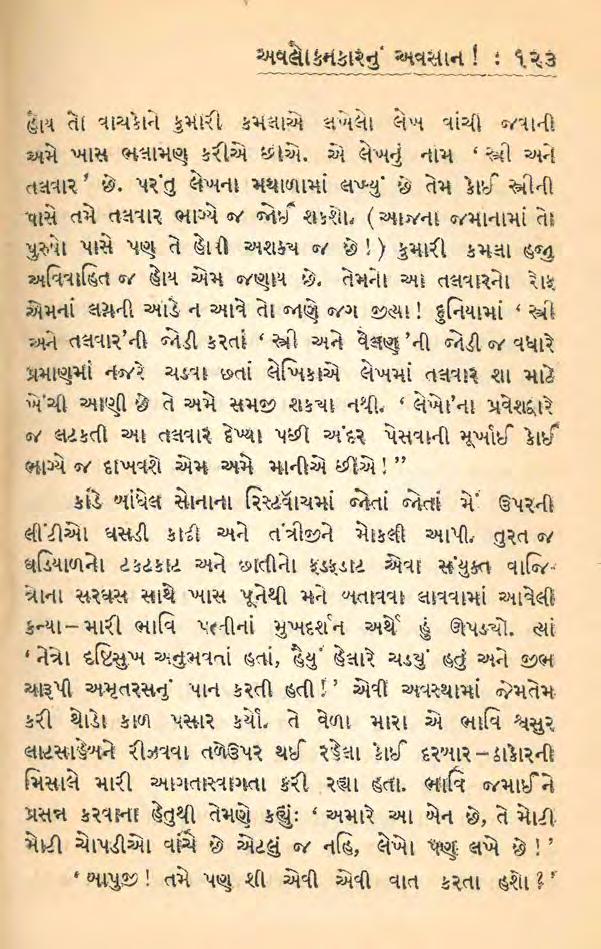 અવલોકનકારનું અવસાન ! : ૧૨૩
હોય તો વાચકોને કુમારી કમલાએ લખેલો લેખ વાંચી જવાની
અમે ખાસ ભલામણ કરીએ છીએ. એ લેખનું નામ ‘ સ્ત્રી અને
તલવાર ’ છે. પરંતુ લેખના મથાળામાં લખ્યું છે તેમ કોઈ સ્ત્રીની
પાસે તમે તલવાર ભાગ્યે જ જોઈ શકશો. ( આજના જમાનામાં તો
પુરુષો પાસે પણ તે હોવી અશક્ય જ છે ! ) કુમારી કમલા હજી
અવિવાહિત જ હોય એમ જણાય છે. તેમનો આ તલવારનો રોફ
એમનાં લગ્નની આડે ન આવે તો જાણે જગ જીત્યા ! દુનિયામાં ‘ સ્ત્રી
અને તલવાર’ની જોડી કરતાં ‘ સ્ત્રી અને વેલણ ’ની જોડી જ વધારે
પ્રમાણમાં નજરે ચડવા છતાં લેખિકાએ લેખમાં તલવાર શા માટે
ખેંચી આણી છે તે અમે સમજી શક્યા નથી. ‘ લેખો’ના પ્રવેશદ્વારે
જ લટકતી આ તલવાર દેખ્યા પછી અંદર પેસવાની મૂર્ખાઈ કોઈ
ભાગ્યે જ દાખવશે એમ અમે માનીએ છીએ ! ”
કાંડે બાંધેલ સોનાના રિસ્ટવૉચમાં જોતાં જોતાં મેં ઉપરની
લીંટીઓ ઘસડી કાઢી અને તંત્રીજીને મોકલી આપી. તુરત જ
ઘડિયાળનો ટકટકાટ અને છાતીનો ફડફડાટ એવા સંયુક્ત વાજિં-
ત્રોના સરઘસ સાથે ખાસ પૂનેથી મને બતાવવા લાવવામાં આવેલી
કન્યા – મારી ભાવિ પત્નીનાં મુખદર્શન અર્થે હું ઊપડ્યો. ત્યાં
‘ નેત્રો દૃષ્ટિસુખ અનુભવતાં હતાં, હૈયું હેલારે ચડ્યું હતું અને જીભ
ચારૂપી અમૃતરસનું પાન કરતી હતી ! ’ એવી અવસ્થામાં જેમતેમ
કરી થોડો કાળ પસાર કર્યો. તે વેળા મારા એ ભાવિ શ્વસુર
લાટસાહેબને રીઝવવા તળેઉપર થઈ રહેલા કોઈ દરબાર – ઠાકોરની
મિસાલે મારી આગતાસ્વાગતા કરી રહ્યા હતા. ભાવિ જમાઈને
પ્રસન્ન કરવાના હેતુથી તેમણે કહ્યું: ‘ અમારે આ બેન છે, તે મોટી
મોટી ચોપડીઓ વાંચે છે એટલું જ નહિ, લેખો પણ લખે છે ! ’
‘ બાપુજી ! તમે પણ શી એવી એવી વાત કરતા હશો ? ’